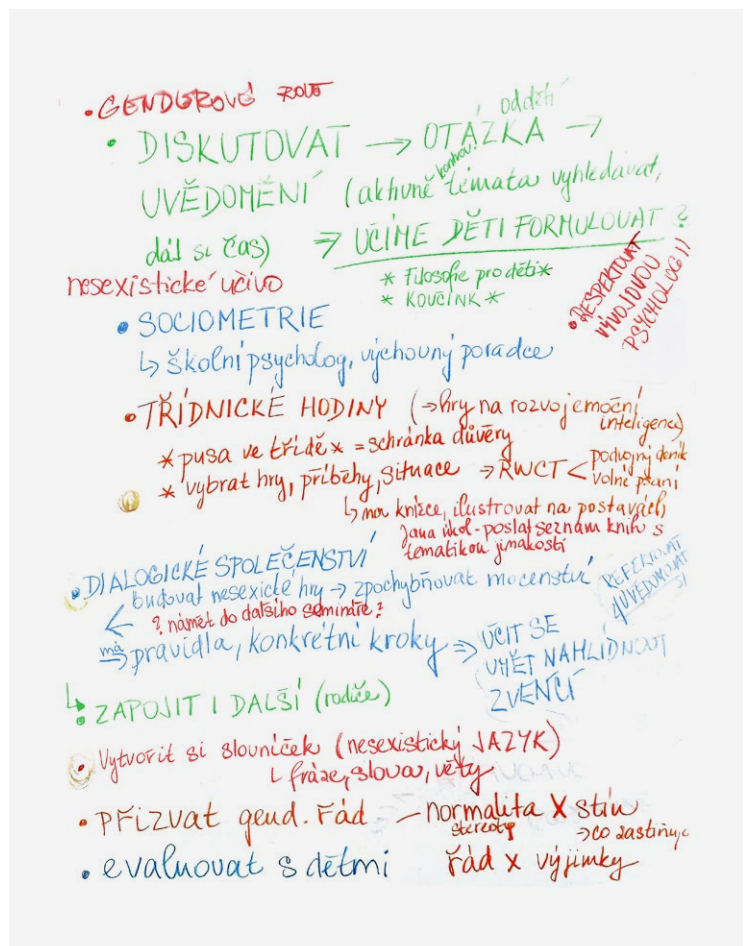 • GENDEROVÉ ROLE
• DISKUTOVAT → OTÁZKA od dětí →
UVĚDOMĚNÍ (aktivně témata vyhledávat,
dát si čas) ⇒ UČÍME DĚTI FORMULOVAT ?
* Filosofie pro děti *
* KOUČINK *
nesexistické učivo
• RESPEKTOVAT
VÝVOJOVOU
PSYCHOLOGII
• SOCIOMETRIE
↳ školní psycholog, výchovný poradce
• TŘÍDNICKÉ HODINY (→ hry na rozvoj emoční
inteligence)
* pusa ve třídě * = schránka důvěry
* vybrat hry, příběhy, situace → RWCT < podvojný deník
volné psaní
↳ knížce, ilustrovat na postavách
Jana úkol - poslat seznam knih s
tematikou jinakosti
• DIALOGICKÉ SPOLEČENSTVÍ
budovat nesexické hry → zpochybňovat mocenství
REFLEKTOVAT
UVĚDOMOVAT
SI
? námět do dalšího semináře ?
má
⇒ pravidla, konkrétní kroky ⇒ UČIT SE
UMĚT NAHLÍDNOUT
ZVENČÍ
↳ • ZAPOJIT I DALŠÍ (rodiče)
• Vytvořit si slovníček (nesexistický JAZYK)
↳ fráze, slova, věty
• PŘizvat gend. Řád – normalita X stín
stereotyp → co zastiňuje
• evaluovat s dětmi řád x výjimky